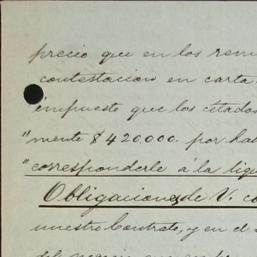 precio que en los rem
contestacion en carta
impuesto que los citados
"mente $420.000. por hab
"corresponderle á la liqu
Obligaciones de V. co
nuestro Contrato, y en el